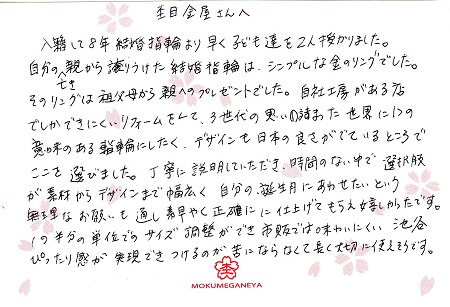 杢目金屋さんへ
入籍して8年 結婚指輪より早く子ども達を2人授かりました。
自分の亡き親から譲りうけた結婚指輪は、シンプルな金のリングでした。
そのリングは祖父母から親へのプレゼントでした。自社工房がある店
でしかできにくいリフォームをして、3世代の思いの詰まった世界に1つの
意味のある指輪にしたく、デザインも日本の良さがでているところで
ここを選びました。丁寧に説明していただき、時間のない中で 選択肢
が素材からデザインまで幅広く 自分の誕生月にあわせたいという
無理なお願いも通し素早く正確に仕上げてもらえ嬉しかったです。
1つ半分の単位でのサイズ調整ができ市販では味わいにくい
ぴったり感が実現できつけるのが苦にならなくて長く大切に使えそうです。
池谷
MOKUMEGANEYA